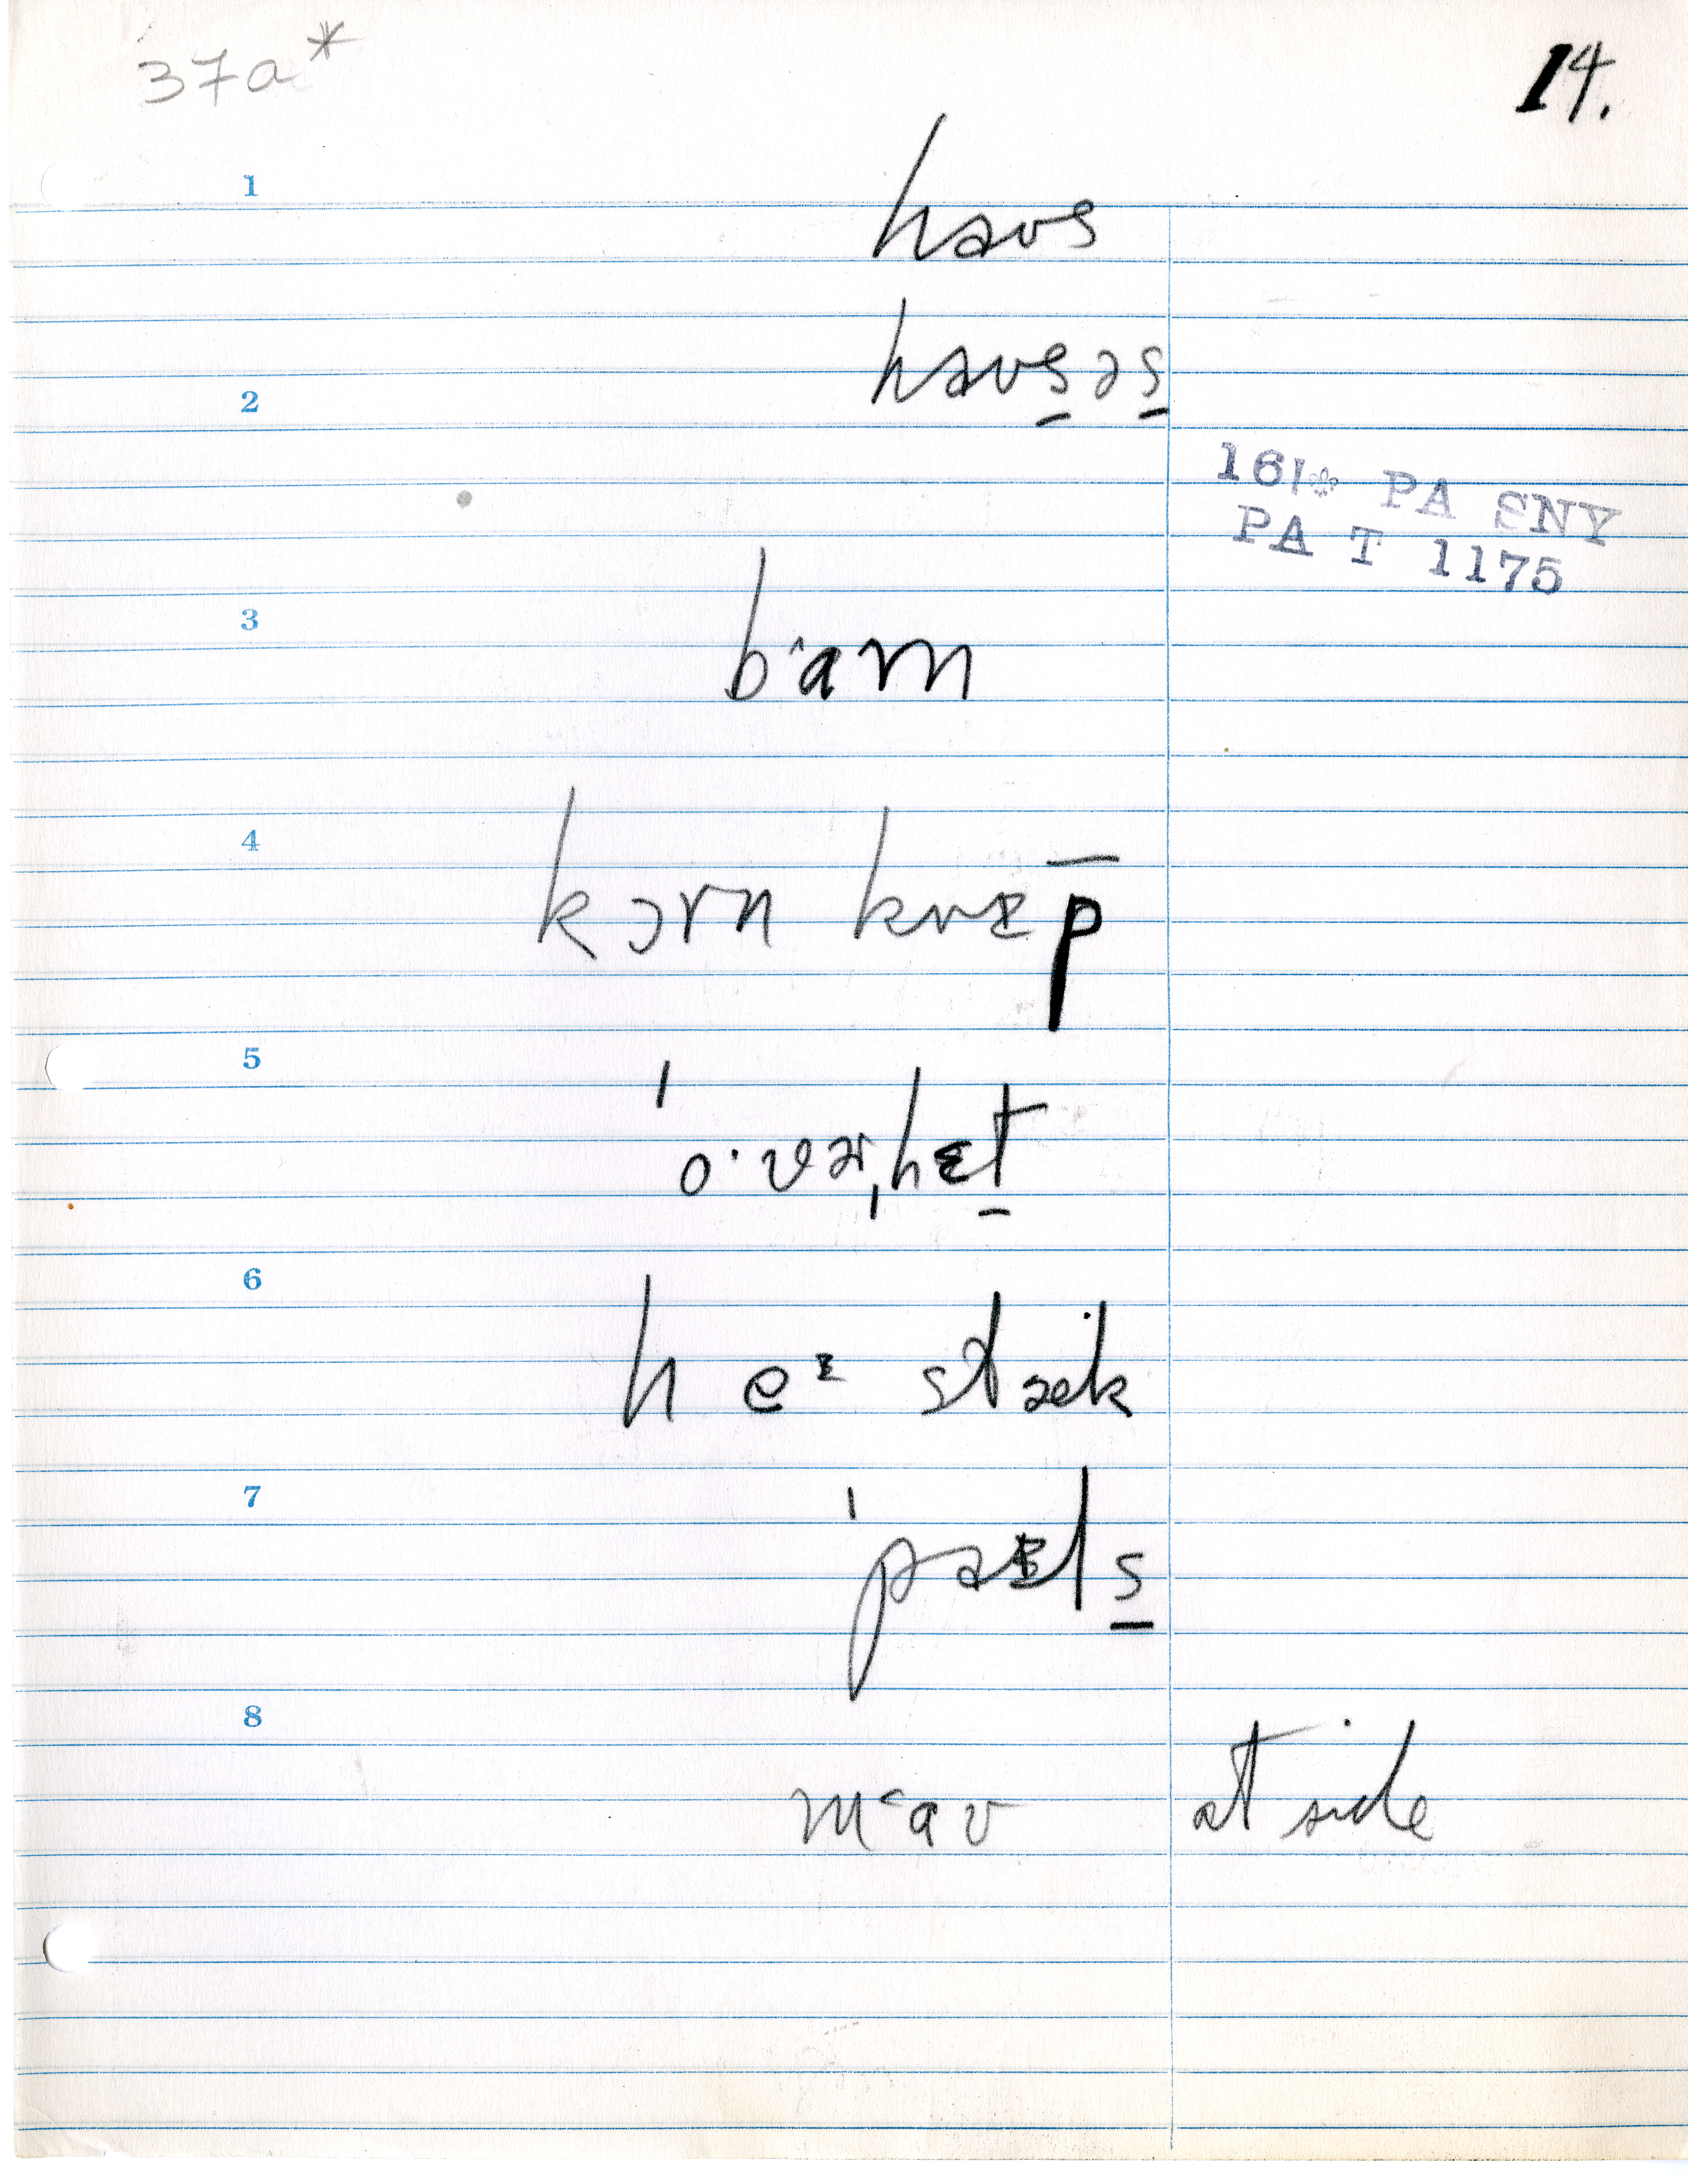 37a* 14.
1 haʊs
haʊs̱əs̱
2
161✲ PA SNY
PA T 1175
3 bᵔarn
4 kɔrn krɪp̅
5 ˈo·vɚˌhɛṯ
6 heᶻ stæk
7 ˈpaɪls̱
8 mᶜaʊ at side